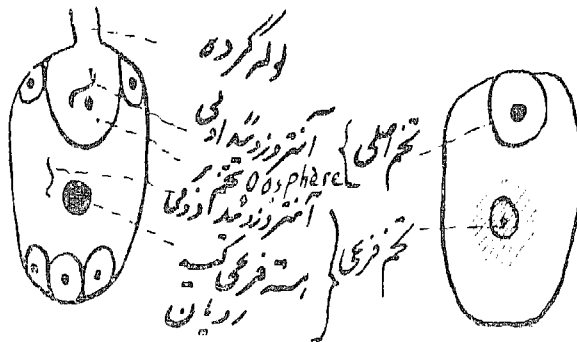 لوله گرده
آنتروزوئید اولی
تخم Oosphère
آنتروزوئید دومی
هسته فرعی کیسه
رویان
تخم اصلی
تخم فرعی